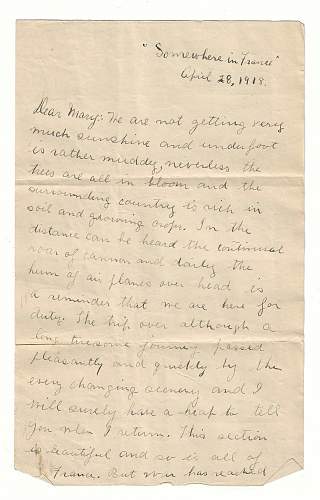 "Somewhere in France"
April 28, 1918.
Dear Mary: We are not getting very
much sunshine and underfoot
is rather muddy, neverless the
trees are all in bloom and the
surrounding country is rich in
soil and growing crops. In the
distance can be heard the continual
roar of cannon and daily the
hum of air planes over head is
a reminder that we are here for
duty. The trip over although a
long tiresome journey passed
pleasantly and quickly by the
every changing scenery and I
will surely have a heap to tell
you when I return. This section
is beautiful and so is all of
France. But war has reached